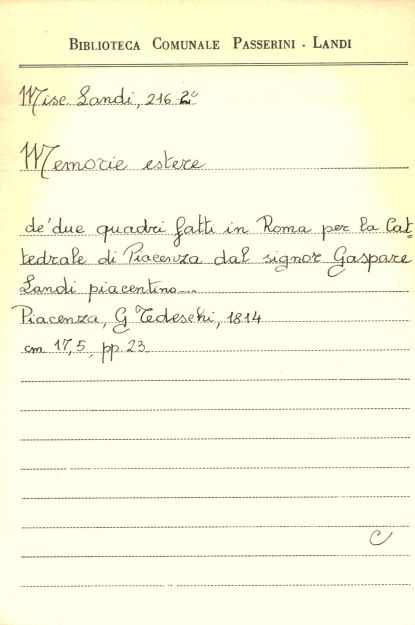 BIBLIOTECA COMUNALE PASSERINI - LANDI
Misc. Landi, 216-2°
Memorie estere
de' due quadri fatti in Roma per la Cat-
tedrale di Piacenza dal signor Gaspare
Landi piacentino...
Piacenza, G Tedeschi, 1814
cm 17,5, pp. 23
C